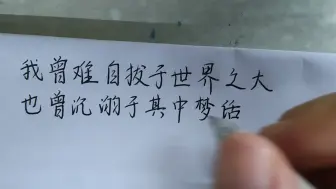 我曾难自拔于世界之大
也曾沉溺于其中梦话